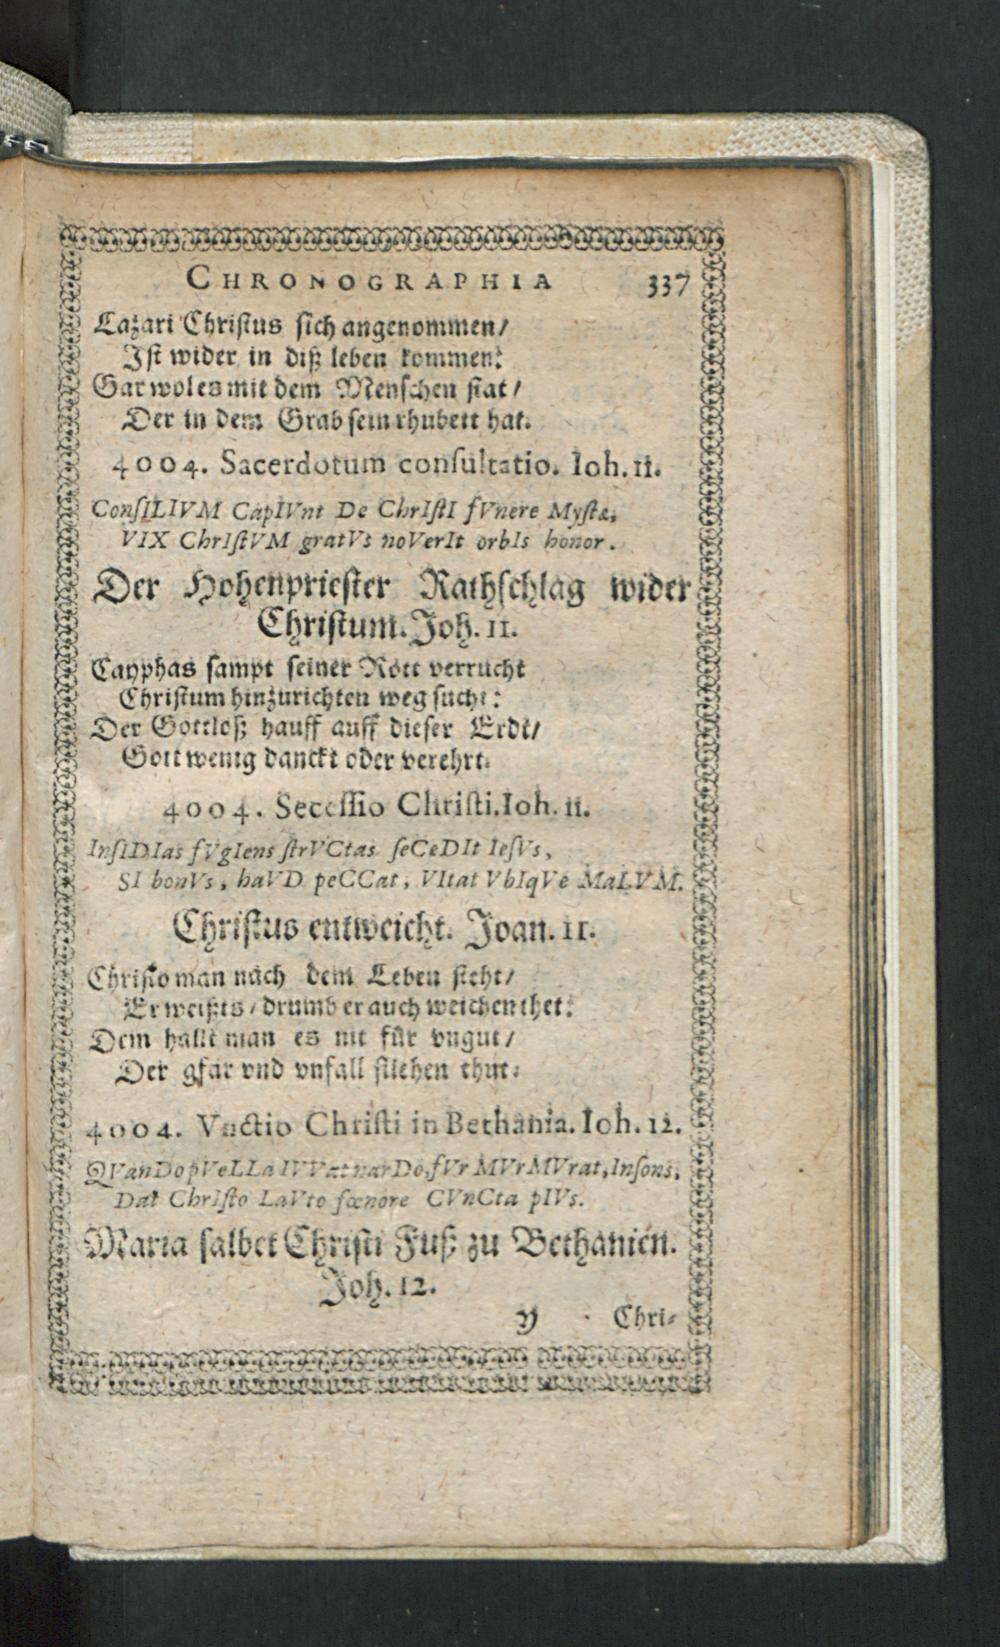 CHRONOGRAPHIA 337
Lazari Christus sich angenommen/
Ist wider in diß leben kommen:
Gar wol es mit dem Menschen stat/
Der in dem Grab sein rhubett hat.
4004. Sacerdotum conſultatio. Ioh. 11.
ConſILIVM CapIVnt De ChrIſtI fVnere Myſtæ,
VIX ChrIſtVM gratVs noVerIt orbIs honor.
Der Hohenpriester Rathschlag wider
Christum. Joh. 11.
Cayphas sampt seiner Rott verrucht
Christum hinzurichten weg sucht:
Der Gottloß hauff auff dieser Erdt/
Gott wenig danckt oder verehrt.
4004. Seceſſio Chriſti. Ioh. 11.
InſIDIas fVgIens ſtrVCtas ſeCeDIt IeſVs,
SI bonVs, haVD peCCat, VItat VbIqVe MaLVM.
Christus entweicht. Joan. 11.
Christo man nach dem Leben steht/
Er weißts/ drumb er auch weichen thet:
Dem hallt man es nit für vngut/
Der gfar vnd vnfall fliehen thut.
4004. Vnctio Chriſti in Bethania. Ioh. 12.
QVanDo pVeLLa IVVat narDo, fVr MVrMVrat, Inſons,
Dat ChrIſto LaVto fœnore CVnCta pIVs.
Maria salbet Christi Fuß zu Bethanien.
Joh. 12.
Y Chri-